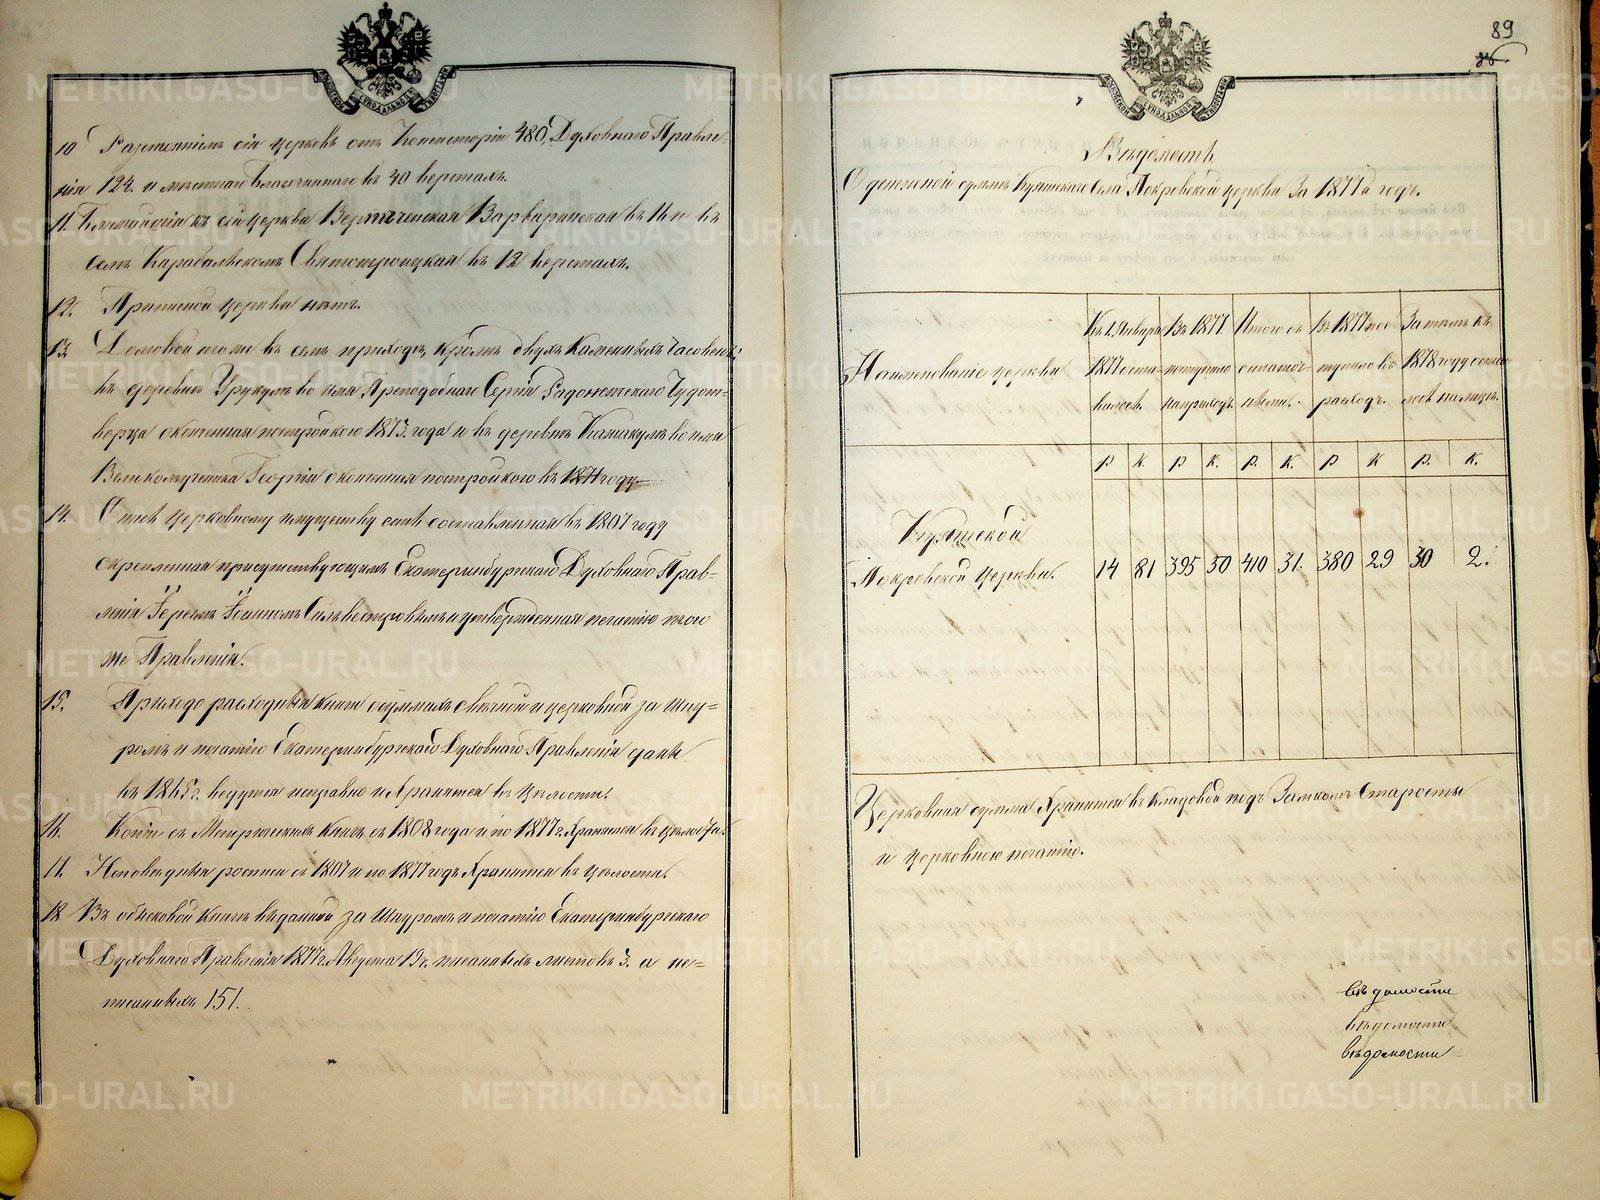 10 Разстояніемъ сія церковь отъ Консисторіи 480, Духовнаго Правле-
нія 124. и мѣстнаго Благочиннаго въ 40 верстахъ.
11. Ближайшія къ сей церкви Воздвиженская Варваринская въ 16 и въ
селѣ Карабольскомъ Святотроицкая въ 12 верстахъ.
12. Приписной церкви нѣтъ.
13. Домовой то же въ семъ приходѣ, кромѣ двухъ каменныхъ часовень:
въ деревни Урукулѣ во имя Преподобнаго Сергія Радонежскаго Чудот-
ворца оконченная постройкою 1873. года и въ деревнѣ Казакулѣ во имя
Великомученика Георгія оконченная постройкою въ 1871 году
14. Опись церковному имуществу есть составленная въ 1807 году
скрепленная присутствующимъ Екатеринбургскаго Духовнаго Прав-
ленія Іереемъ Іоанномъ Сильвестровымъ и утвержденная печатію того
же Правленія.
15. Приходо расходныя книги о суммахъ свѣчной и церковной за шну-
ромъ и печатію Екатеринбургскаго Духовнаго Правленія даны
въ 1865 г. ведутся исправно и хранятся въ цѣлости.
16. Копіи съ Метрическихъ книгъ съ 1808 года и по 1877 г. хранятся въ цѣлости.
17. Исповѣдныя росписи съ 1807 и по 1877 годъ хранятся въ цѣлости.
18 Въ обысковой книгѣ выданной за шнуромъ и печатію Екатеринбургскаго
Духовнаго Правленія 1877 г. Августа 19 ч. писанныхъ листовъ 3. а не-
писанныхъ 151.
89
Вѣдомость
О денежной суммѣ Куяшскаго села Покровской церкви за 1877й годъ.
Наименованіе церкви
Къ 1. Января 1877 оста-валось.
Въ 1877 поступило на приходъ.
Итого съ остаточ-ными.
Въ 1877 по-ступило въ расходъ.
Затѣмъ къ 1878 году остает-ся на лицо.
р к. р к. р. к. р к р. к.
Куяшской
Покровской церкви. 14 81 395 50 410 31. 380 29 30 2.
Церковная сумма хранится въ кладовой подъ Замкомъ Старосты
и церковною печатію.
вѣдомости
вѣдомости
вѣдомости
METRIKI.GASO-URAL.RU